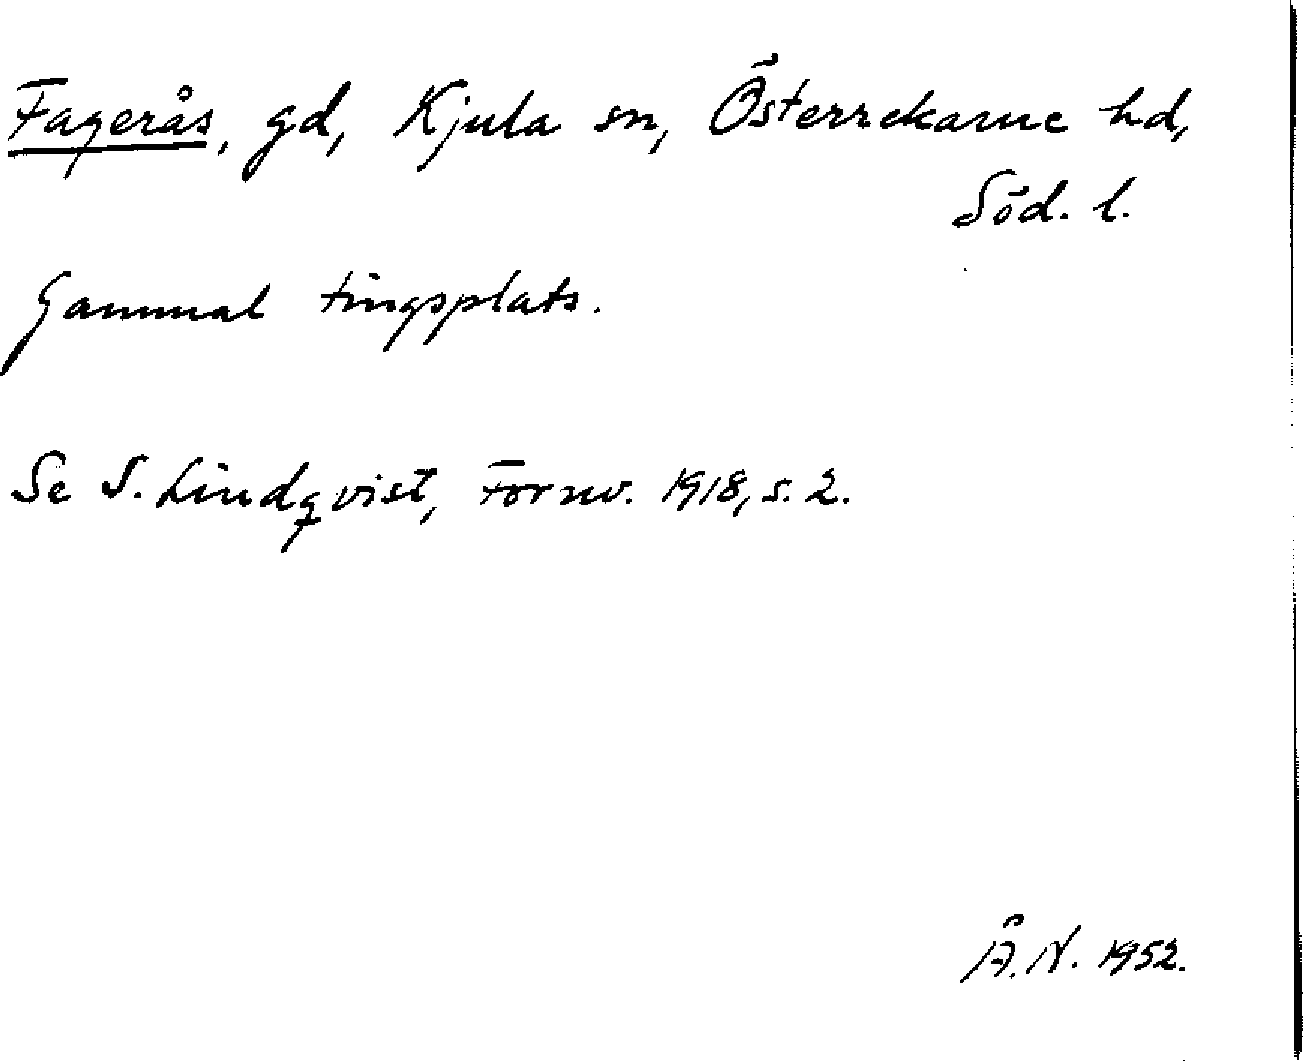 Fagerås, gd, Kjula sn, Österrekarne hd,
Söd. l.
Gammal tingsplats.
Se S. Lindqvist, Fornv. 1918, s. 2.
Å. N. 1952.